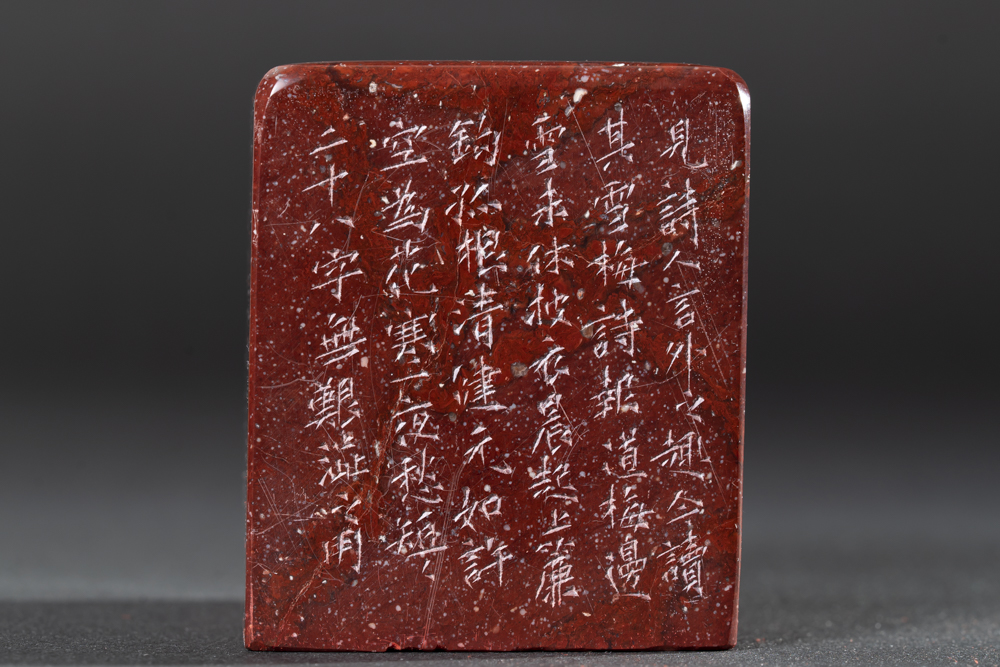 見詩人言外之趣今讀
其雪梅詩報道梅邊
雪未休披衣晨起上簾
鈎孤根清健元如許
空為花寒一夜愁短〻
二十八字無艱澀